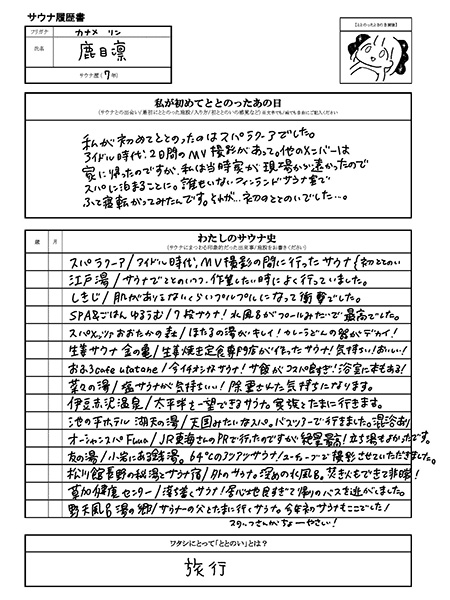 サウナ履歴書
フリガナ
カナメ リン
氏名
鹿目凛
サウナ歴( 7年)
私が初めてととのったあの日
私が初めてととのったのはスパラクーアでした。
アイドル時代、2日間のMV撮影があって。他のメンバーは
家に帰ったのですが、私は当時家が現場から遠かったので
スパに泊まることに。誰もいないフィンランドサウナ室で
ふと寝転がってみたんです。それが…初ととのいでした…。
歳 月
わたしのサウナ史
(サウナにまつわる印象的だった出来事/施設をお書きください)
スパラクーア/アイドル時代、MV撮影の間に行ったサウナ 初ととのい
江戸湯/サウナでととのいつつ、作業したい時によく行っていました。
しきじ/肌がありえないくらいプルプルになって衝撃でした。
SPA&ごはん ゆるうむ/7種サウナ!水風呂がプールみたいで最高でした。
スパメッツァおおたかの森/ほたるの湯がキレイ!カレーうどんの器がデカイ!
生姜サウナ 金の亀/生姜焼き定食専門店が作ったサウナ!気持ちいい!おいしい!
おふろcafe utatane/今イチオシなサウナ!サ飯がコスパ良すぎ!浴室に本もある!
菜々の湯/塩サウナが気持ちいい!除霊された気持ちになります。
伊豆赤沢温泉/太平洋を一望できるサウナ。家族とたまに行きます。
池の平ホテル 湖天の湯/天国みたいなスパ。バスツアーで行きました。混浴あり
オーシャンスパ Fuua/JR東海さんのPRで行ったのですが絶景最高!立ち湯もよかったです。
友の湯/小岩にある銭湯。64℃のコンフサウナ/ユーチューブで撮影させていただきました。
松川館 長野の秘湯とサウナ宿/外のサウナ。深めの水風呂。焚き火もできて非日常!
草加健康センター/落ち着くサウナ!居心地良すぎて帰りのバスを逃がしました。
野天風呂 湯の郷/サウナーの父とたまに行くサウナ。今年初サウナもここでした!
スタッフさんがちょーやさしい!
ワタシにとって「ととのい」とは?
旅行